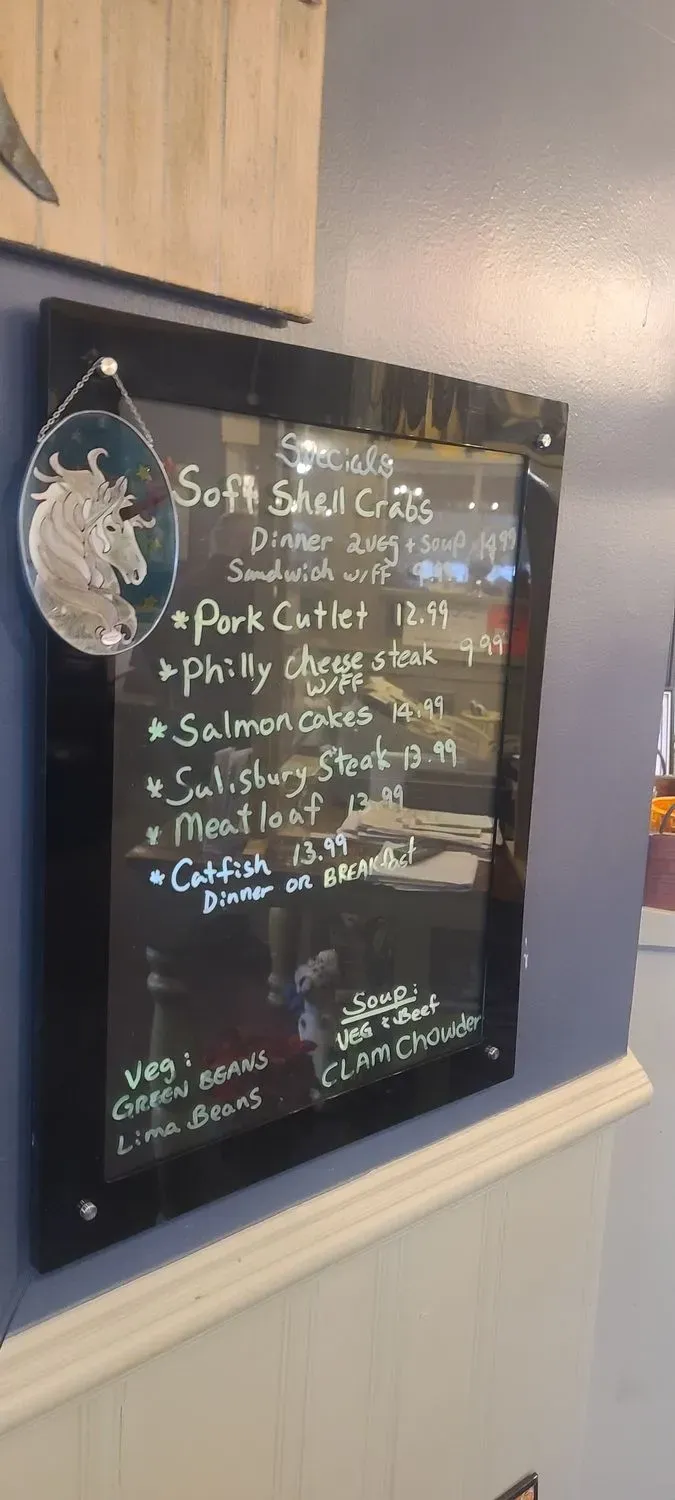 Specials
Soft Shell Crabs
Dinner 2veg + soup 14.99
Sandwich w/FF
*Pork Cutlet 12.99
*Philly cheese steak 9.99
w/FF
*Salmon cakes 14.99
*Salisbury Steak 13.99
*Meatloaf 13.99
*Catfish 13.99
Dinner or BREAKfast
Soup:
VEG & Beef
CLAM Chowder
Veg:
GREEN BEANS
Lima Beans